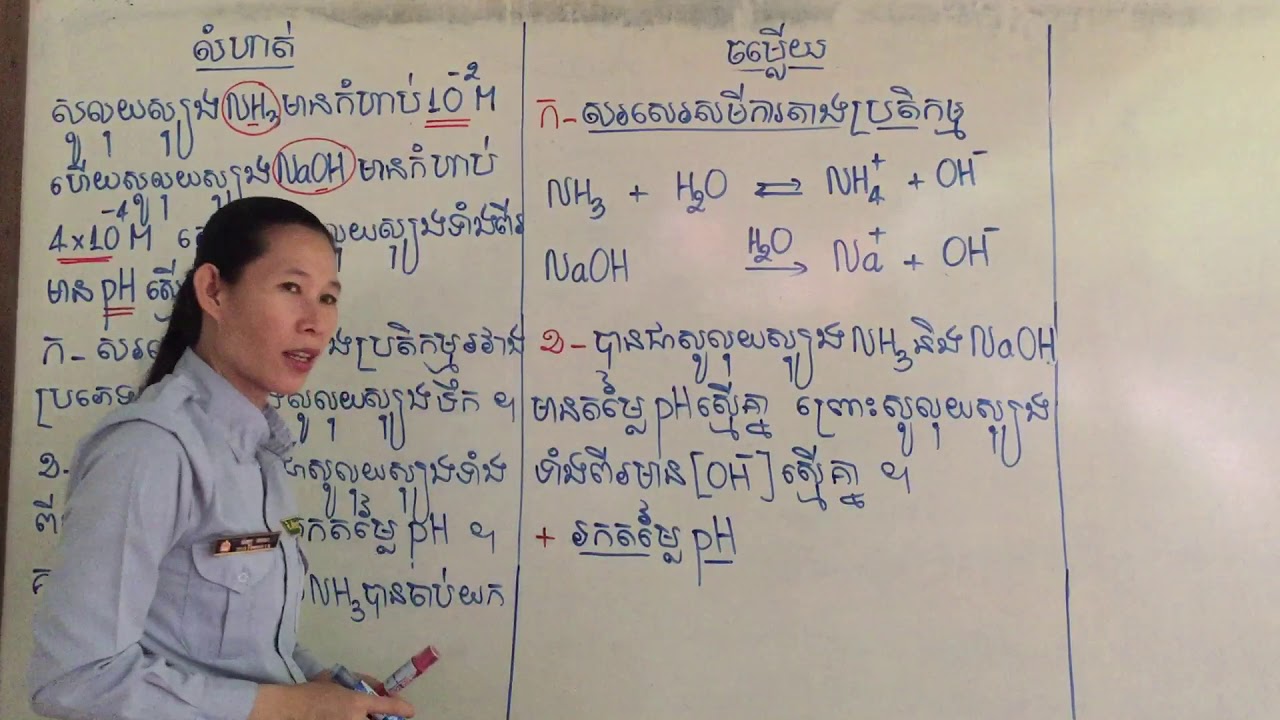 លំហាត់
សូលុយស្យុង NH₃ មានកំហាប់ 10⁻² M
ហើយសូលុយស្យុង NaOH មានកំហាប់
4 × 10⁻⁴ M លុយស្យុងទាំងពីរ
មាន pH ស្មើ
ក- ប្រតិកម្មរវាង
សូលុយស្យុងទឹក ។
ខ- ជាសូលុយស្យុងទាំង
ពី រកតម្លៃ pH ។
NH₃ បានចាប់យក
ចម្លើយ
ក- សរសេរសមីការតាងប្រតិកម្ម
NH₃ + H₂O ⇌ NH₄⁺ + OH⁻
NaOH H₂O → Na⁺ + OH⁻
ខ- បានជាសូលុយស្យុង NH₃ និង NaOH
មានតម្លៃ pH ស្មើគ្នា ព្រោះសូលុយស្យុង
ទាំងពីរមាន [OH⁻] ស្មើគ្នា ។
+ រកតម្លៃ pH